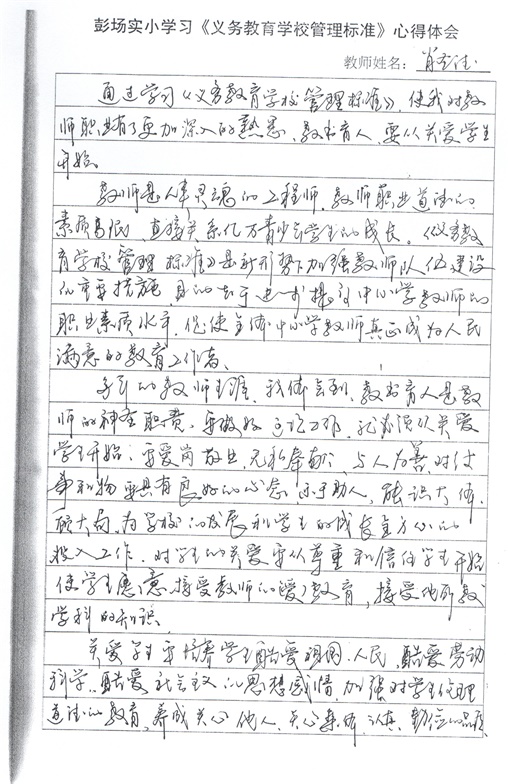 彭场实小学习《义务教育学校管理标准》心得体会
教师姓名：肖
通过学习《义务教育学校管理标准》，使我对教
师职业有了更加深入的熟悉，教书育人，要从关爱学生
开始。
教师是人类灵魂的工程师，教师职业道德的
素质高低，直接关系亿万青少年学生的成长。《义务教
育学校管理标准》是新形势下加强教师队伍建设
的重要措施，目的在于进一步提高中小学教师的
职业素质水平，促使全体中小学教师真正成为人民
满意的教育工作者。
多年的教师生涯，我体会到，教书育人是教
师的神圣职责，要做好这项工作，就必须从关爱
学生开始：要爱岗敬业，无私奉献，与人为善，对待
事和物要具有良好的心态，乐于助人，能识大体，
顾大局，为学校的发展和学生的成长全方位的
投入工作。对学生的关爱要从尊重和信任学生开始
使学生愿意接受教师的爱，教育，接受他所教
学科的知识。
关爱学生要培养学生酷爱祖国，人民，酷爱劳动
科学，酷爱社会主义的思想感情，加强对学生伦理
道德的教育，养成关心他人，关心集体，认真，勤俭的品质